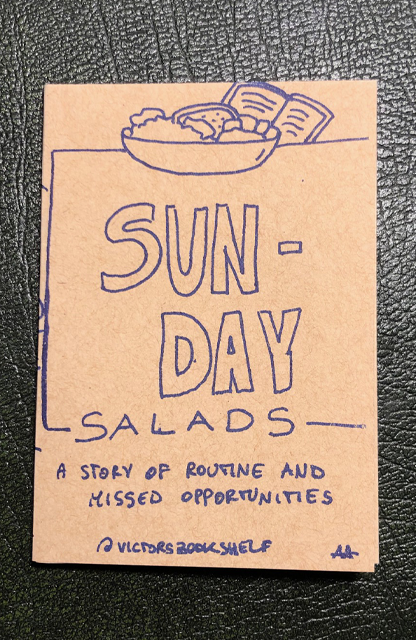 SUN-
DAY
SALADS
A STORY OF ROUTINE AND
MISSED OPPORTUNITIES
@VICTORSBOOKSHELF
AA